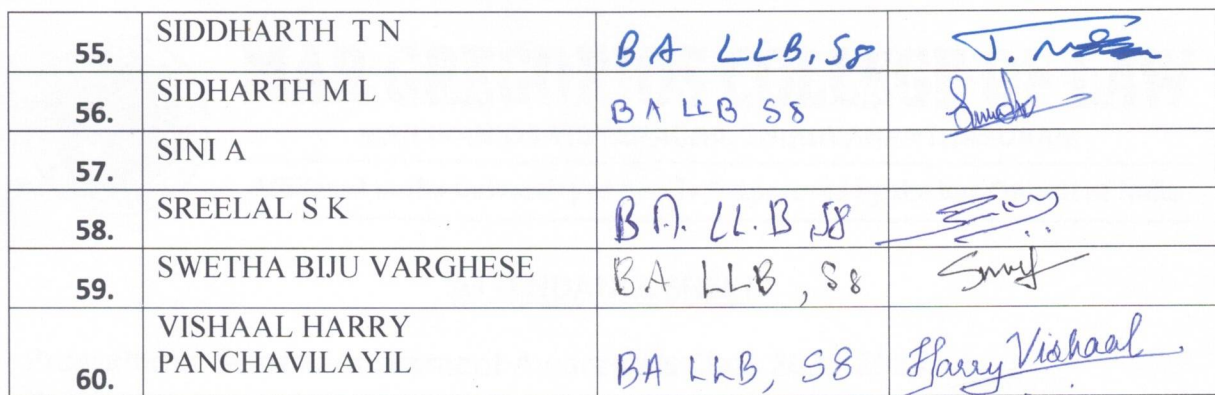 55. SIDDHARTH T N BA LLB, S8
56. SIDHARTH M L BA LLB S8
57. SINI A
58. SREELAL S K B.A. LL.B, S8
59. SWETHA BIJU VARGHESE BA LLB, S8
VISHAAL HARRY
60. PANCHAVILAYIL BA LLB, S8 Harry Vishaal